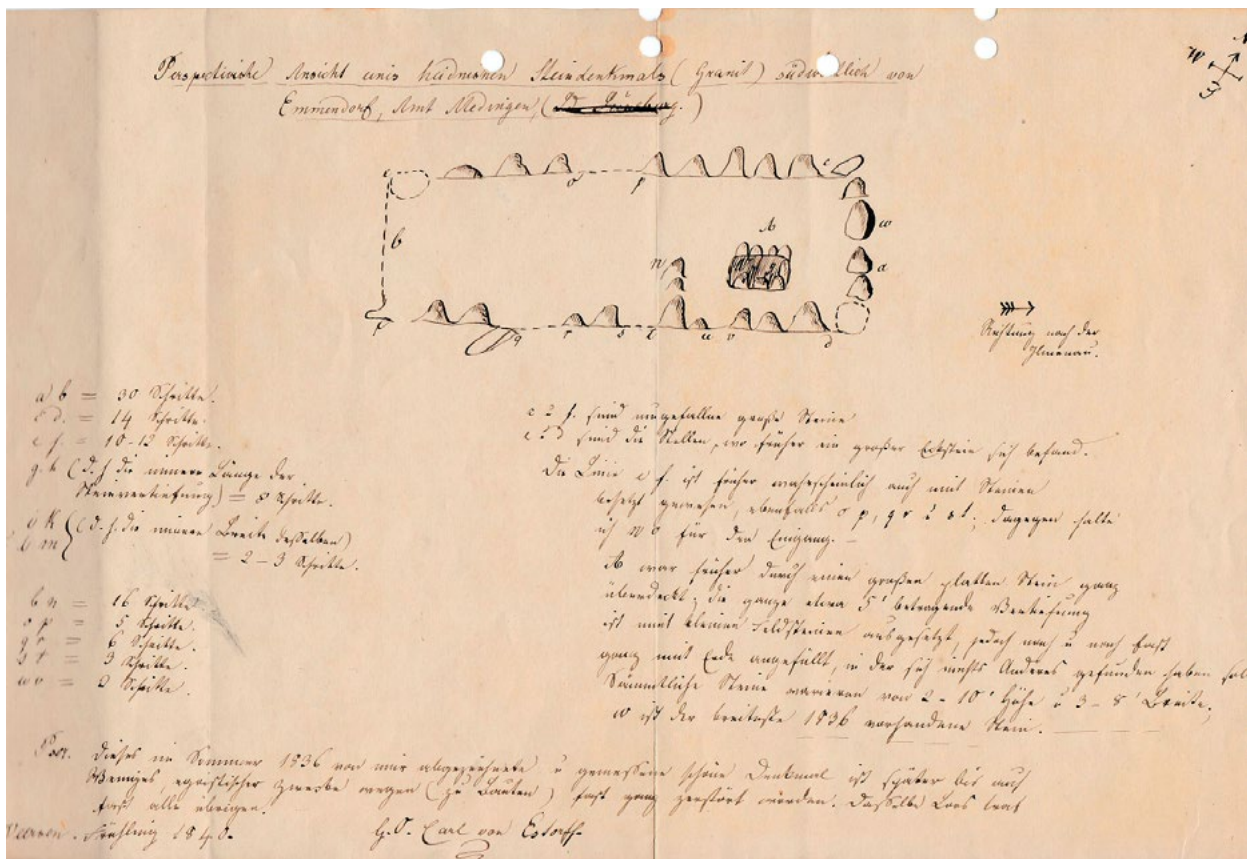 Perspectivische Ansicht eines heidnischen Steindenkmals (Granit) südwestlich von
Emmendorf, Amt Medingen,
N
W
e
o
p
c
w
b
n
A
a
f
q
r
s
t
u
v
d
Richtung nach der
Ilmenau.
a b = 30 Schritte.
c d. = 14 Schritte.
e f. = 10-12 Schritte.
g. h (d. h die innere Länge der
Steinvertiefung) = 8 Schritte.
i k
l m (d. h. die innere Breite desselben)
= 2 – 3 Schritte.
b n = 16 Schritte
o p = 5 Schritte.
q r = 6 Schritte
s t = 3 Schritte.
u v = 2 Schritte.
e u f. sind umgefallne große Steine
c u d sind die Stellen, wo früher ein großer Eckstein sich befand.
Die Linie e f. ist früher wahrscheinlich auch mit Steinen
besetzt gewesen, ebenfalls o p, q r u s t; dagegen halte
ich für den Eingang. –
A war früher durch einen großen platten Stein ganz
überdeckt; die ganze etwa 5 betragende Vertiefung
ist mit kleinen Feldsteinen ausgesetzt, jedoch nach u nach fast
ganz mit Erde angefüllt, in der sich nichts Anderes gefunden haben soll
Sämmtliche Steine variieren von 2 – 10' Höhe u 3 – 8' Breite,
w ist der breiteste 1836 vorhandene Stein.
Dieses im Sommer 1836 von mir abgezeichnete u gemessene schöne Denkmal ist später bis auf
Weniges, egoistischer Zwecke wegen (zu Bauten) fast ganz zerstört worden. Dasselbe Loos traf
fast alle übrigen.
Veerssen. Frühling 1840. G. O. Carl von Estorff